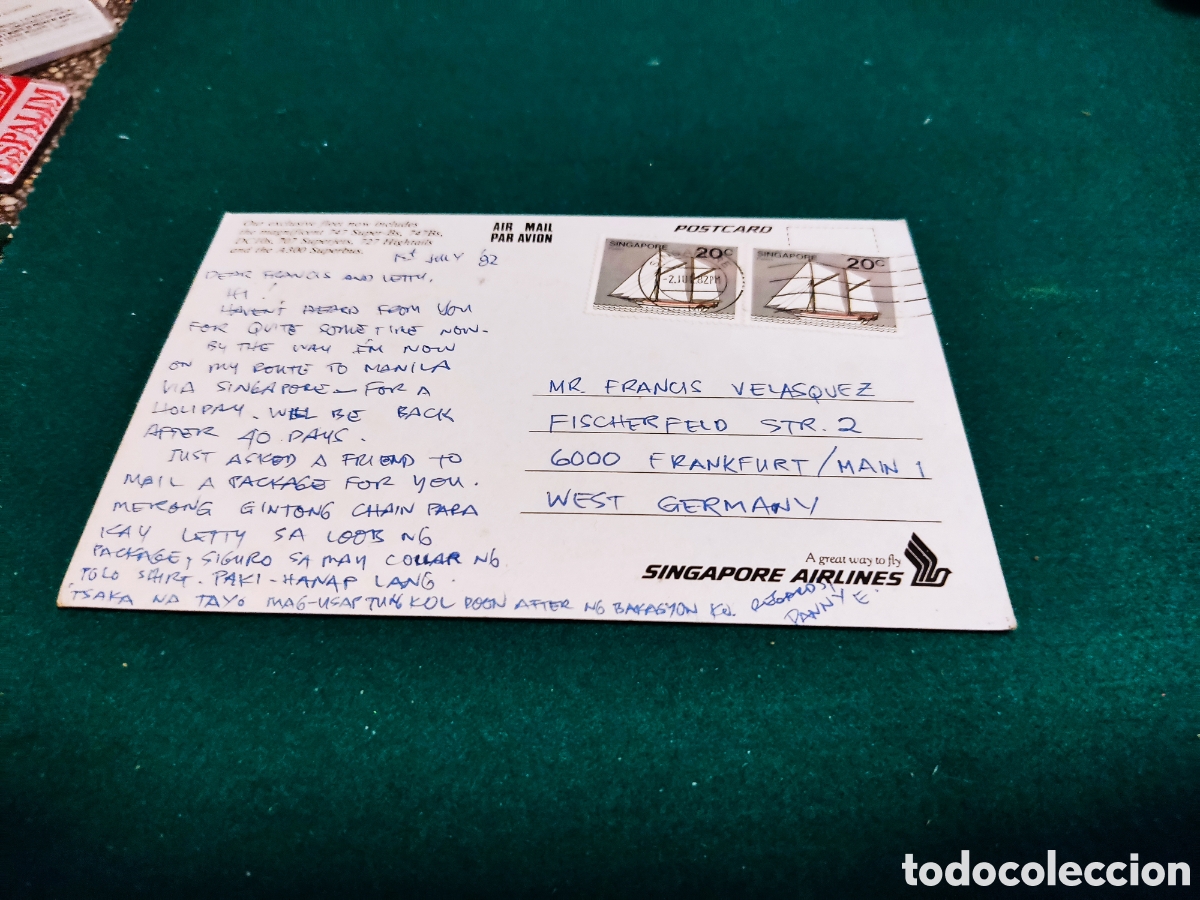 ESPALIM
Our exclusive fleet now includes
the magnificent 747 Super-Bs, 747Bs,
DC10s, 707 Superjets, 727 Highjets
and the A300 Superbus.
AIR MAIL
PAR AVION
POSTCARD
SINGAPORE 20c
SINGAPORE 20c
-2.JUL.82PM
1st JULY '82
DEAR FRANCIS AND LETTY,
HI!
HAVEN'T HEARD FROM YOU
FOR QUITE SOMETIME NOW.
BY THE WAY I'M NOW
ON MY ROUTE TO MANILA
VIA SINGAPORE – FOR A
HOLIDAY. WILL BE BACK
AFTER 40 DAYS.
JUST ASKED A FRIEND TO
MAIL A PACKAGE FOR YOU.
MERONG GINTONG CHAIN PARA
KAY LETTY SA LOOB NG
PACKAGE, SIGURO SA MAY COLLAR NG
POLO SHIRT. PAKI-HANAP LANG.
TSAKA NA TAYO MAG-USAP TUNGKOL DOON AFTER NG BAKASYON KO.
REGARDS,
DANNY E.
MR. FRANCIS VELASQUEZ
FISCHERFELD STR. 2
6000 FRANKFURT/MAIN 1
WEST GERMANY
A great way to fly
SINGAPORE AIRLINES
todocoleccion